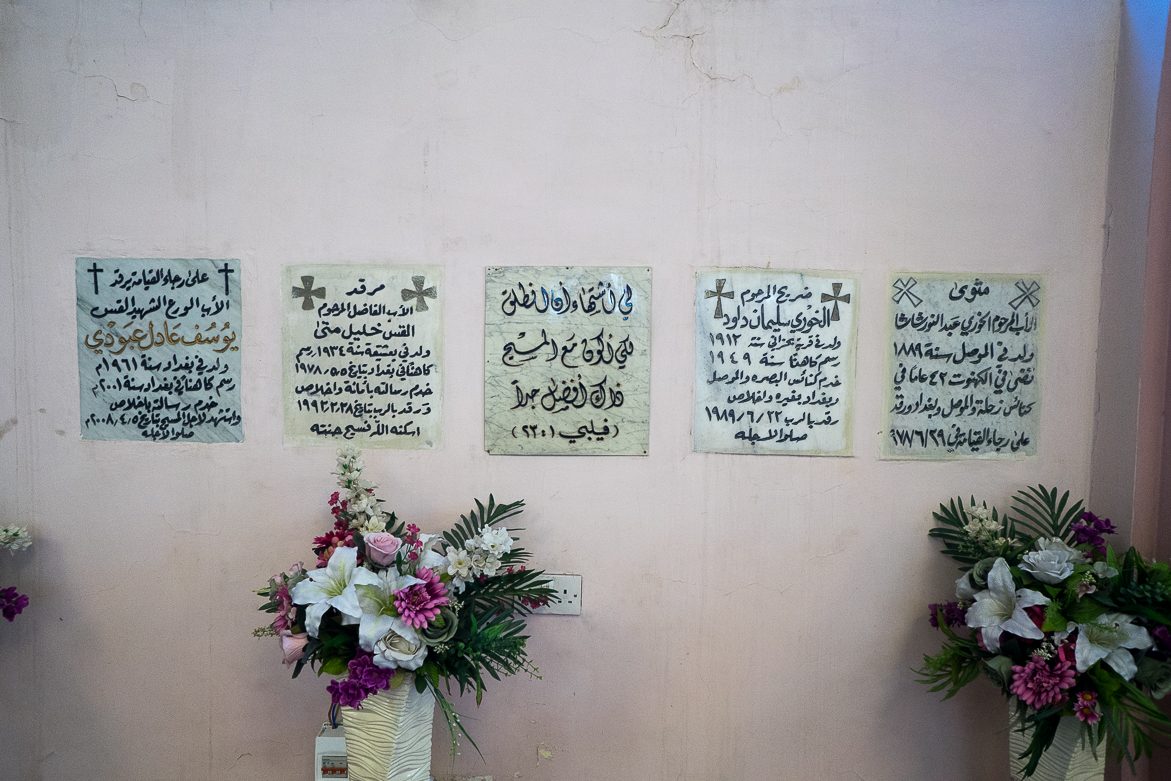 مثوى
الأب المرحوم الخوري عبد النور شاشا
ولد في الموصل سنة ١٨٨٩
قضى في الكهنوت ٤٢ عاما في
كنائس زحلة والموصل وبغداد ورقد
على رجاء القيامة في ٩٧٨/٦/٢٩
ضريح المرحوم
الخوري سليمان داود
ولد في قرية بحزاني سنة ١٩١٢
رسم كاهنا سنة ١٩٤٩
خدم كنائس البصره والموصل
وبغداد بغيره واخلاص
رقد بالرب ١٩٨٩/٦/٢٢
صلوا لاجله
لي أشتهاء أن انطلق
لكي أكون مع المسيح
ذاك أفضل جداً
(فيلبي ٢٣:١)
مرقد
الأب الفاضل المرحوم
القس خليل متى
ولد في بعشيقة سنة ١٩٣٤ رسم
كاهنا في بغداد بتاريخ ١٩٧٨/٥/٥
خدم رسالته بأمانة واخلاص
ورقد بالرب بتاريخ ١٩٩٢/٣/٢٨
اسكنه الله فسيح جنته
على رجاء القيامة يرقد
الأب الورع الشهيد القس
يوسف عادل عبودي
ولد في بغداد سنة ١٩٦١م
رسم كاهنا في بغداد سنة ٢٠٠١م
خدم رسالته باخلاص
واستشهد لاجل المسيح بتاريخ ٢٠٠٨/٤/٥م
صلوا لاجله